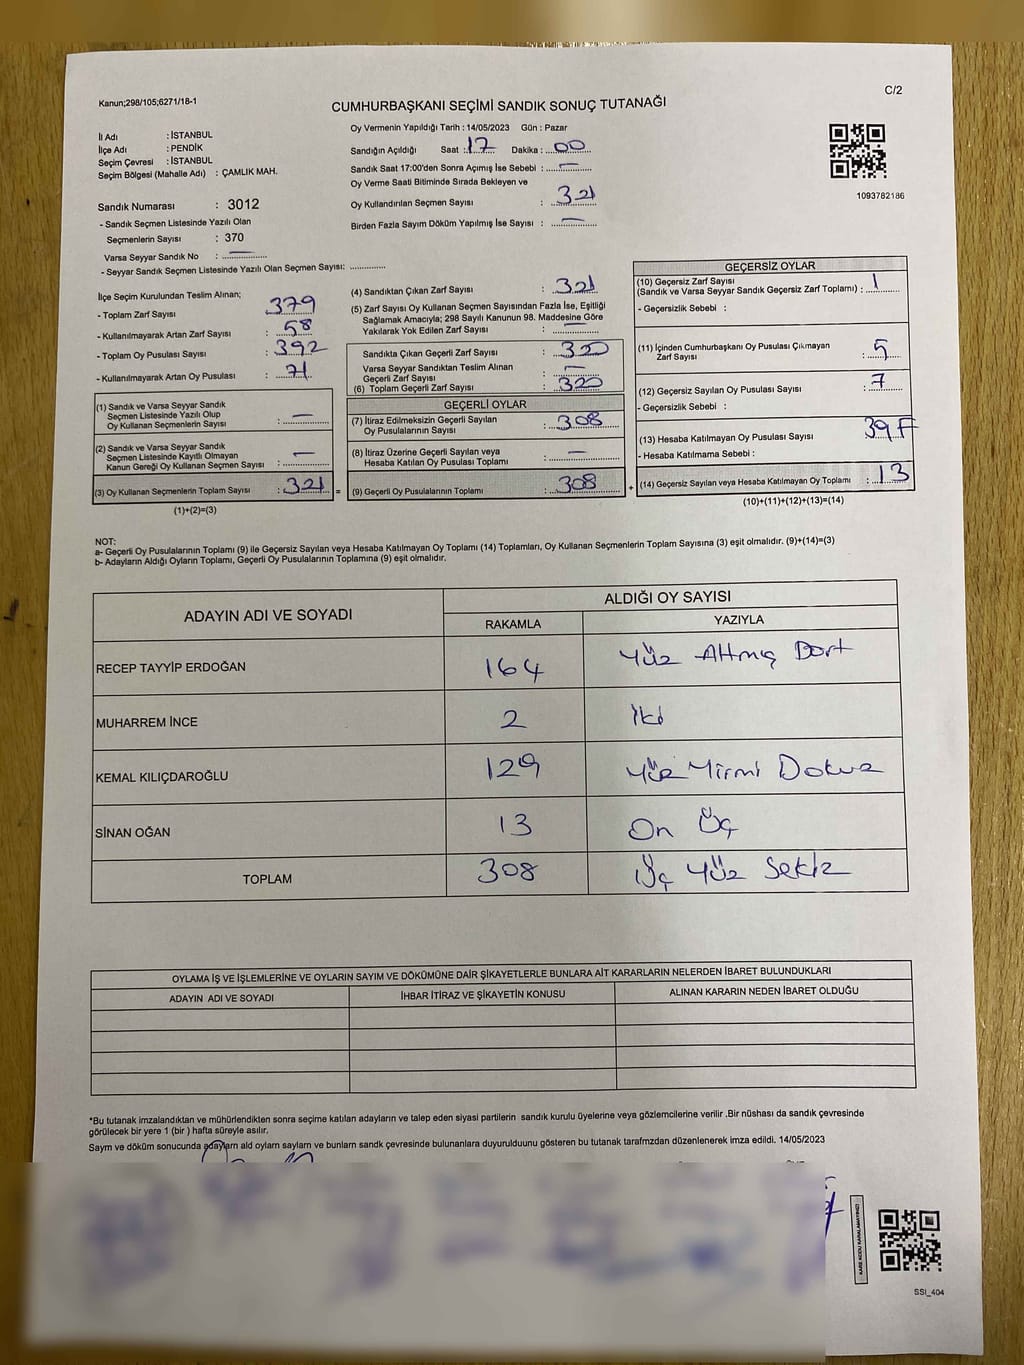 Kanun;298/105;6271/18-1
CUMHURBAŞKANI SEÇİMİ SANDIK SONUÇ TUTANAĞI
C/2
İl Adı : İSTANBUL
İlçe Adı : PENDİK
Seçim Çevresi : İSTANBUL
Seçim Bölgesi (Mahalle Adı) : ÇAMLIK MAH.
Sandık Numarası : 3012
- Sandık Seçmen Listesinde Yazılı Olan
Seçmenlerin Sayısı : 370
Varsa Seyyar Sandık No : —
- Seyyar Sandık Seçmen Listesinde Yazılı Olan Seçmen Sayısı: ..............
Oy Vermenin Yapıldığı Tarih : 14/05/2023 Gün : Pazar
Sandığın Açıldığı Saat : 17 Dakika : 00
Sandık Saat 17:00'den Sonra Açımış İse Sebebi : —
Oy Verme Saati Bitiminde Sırada Bekleyen ve
Oy Kullandırılan Seçmen Sayısı : 321
Birden Fazla Sayım Döküm Yapılmış İse Sayısı : —
1093782186
İlçe Seçim Kurulundan Teslim Alınan;
- Toplam Zarf Sayısı : 379
- Kullanılmayarak Artan Zarf Sayısı : 58
- Toplam Oy Pusulası Sayısı : 392
- Kullanılmayarak Artan Oy Pusulası : 71
(1) Sandık ve Varsa Seyyar Sandık
Seçmen Listesinde Yazılı Olup
Oy Kullanan Seçmenlerin Sayısı : —
(2) Sandık ve Varsa Seyyar Sandık
Seçmen Listesinde Kayıtlı Olmayan
Kanun Gereği Oy Kullanan Seçmen Sayısı : —
(3) Oy Kullanan Seçmenlerin Toplam Sayısı : 321 =
(1)+(2)=(3)
(4) Sandıktan Çıkan Zarf Sayısı : 321
(5) Zarf Sayısı Oy Kullanan Seçmen Sayısından Fazla İse, Eşitliği
Sağlamak Amacıyla; 298 Sayılı Kanunun 98. Maddesine Göre
Yakılarak Yok Edilen Zarf Sayısı : —
Sandıkta Çıkan Geçerli Zarf Sayısı : 320
Varsa Seyyar Sandıktan Teslim Alınan
Geçerli Zarf Sayısı : —
(6) Toplam Geçerli Zarf Sayısı : 320
GEÇERLİ OYLAR
(7) İtiraz Edilmeksizin Geçerli Sayılan
Oy Pusulalarının Sayısı : 308
(8) İtiraz Üzerine Geçerli Sayılan veya
Hesaba Katılan Oy Pusulası Toplamı : —
(9) Geçerli Oy Pusulalarının Toplamı : 308 +
GEÇERSİZ OYLAR
(10) Geçersiz Zarf Sayısı
(Sandık ve Varsa Seyyar Sandık Geçersiz Zarf Toplamı) : 1
- Geçersizlik Sebebi :
(11) İçinden Cumhurbaşkanı Oy Pusulası Çıkmayan
Zarf Sayısı : 5
(12) Geçersiz Sayılan Oy Pusulası Sayısı : 7
- Geçersizlik Sebebi :
(13) Hesaba Katılmayan Oy Pusulası Sayısı
- Hesaba Katılmama Sebebi :
(14) Geçersiz Sayılan veya Hesaba Katılmayan Oy Toplamı : 13
(10)+(11)+(12)+(13)=(14)
NOT:
a- Geçerli Oy Pusulalarının Toplamı (9) ile Geçersiz Sayılan veya Hesaba Katılmayan Oy Toplamı (14) Toplamları, Oy Kullanan Seçmenlerin Toplam Sayısına (3) eşit olmalıdır. (9)+(14)=(3)
b- Adayların Aldığı Oyların Toplamı, Geçerli Oy Pusulalarının Toplamına (9) eşit olmalıdır.
ADAYIN ADI VE SOYADI
ALDIĞI OY SAYISI
RAKAMLA YAZIYLA
RECEP TAYYİP ERDOĞAN 164 Yüz Altmış Dört
MUHARREM İNCE 2 İki
KEMAL KILIÇDAROĞLU 129 Yüz Yirmi Dokuz
SİNAN OĞAN 13 On Üç
TOPLAM 308 Üç Yüz Sekiz
OYLAMA İŞ VE İŞLEMLERİNE VE OYLARIN SAYIM VE DÖKÜMÜNE DAİR ŞİKAYETLERLE BUNLARA AİT KARARLARIN NELERDEN İBARET BULUNDUKLARI
ADAYIN ADI VE SOYADI İHBAR İTİRAZ VE ŞİKAYETİN KONUSU ALINAN KARARIN NEDEN İBARET OLDUĞU
*Bu tutanak imzalandıktan ve mühürlendikten sonra seçime katılan adayların ve talep eden siyasi partilerin sandık kurulu üyelerine veya gözlemcilerine verilir .Bir nüshası da sandık çevresinde
görülecek bir yere 1 (bir ) hafta süreyle asılır.
Sayım ve döküm sonucunda adayların ald oyların sayları ve bunlarn sandk çevresinde bulunanlara duyurulduunu gösteren bu tutanak tarafmzdan düzenlenerek imza edildi. 14/05/2023
SSI_404